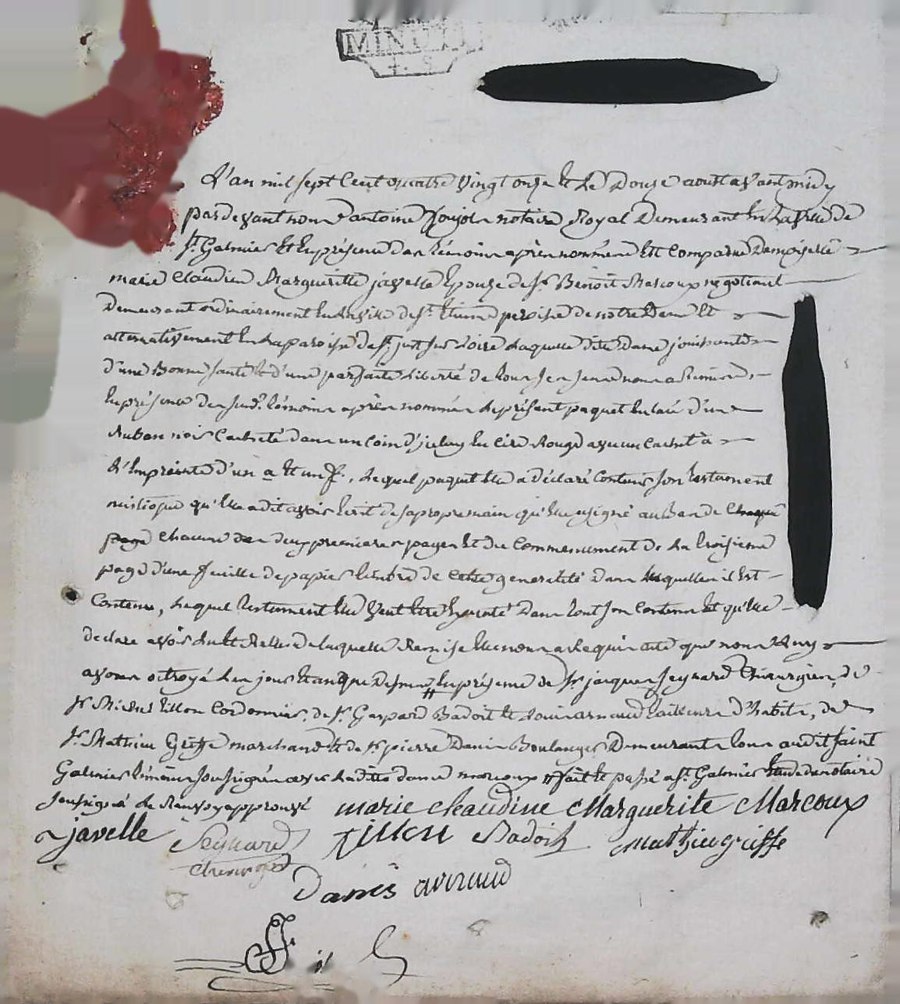 MINUTE
4. S
L'an mil sept Cent quatre Vingt onze et Le Douze aoust avant midy
pardevant nous antoine notaire Royal Demeurant En la Ville de
St. Galmier Et En présence des témoins après nommés Est Comparue Demoiselle
marie Claudine Marguerite javelle Epouse de Sr. Benoit Marcoux négotiant
Demeurant ordinairement En la Ville de St. Etienne paroisse de notre Dame Et
alternativement En La paroisse de St. just sur Loire Laquelle dite dame jouissante
d'une Bonne santé Et d'une parfaite Liberté de tous ses sens nous a Remis
En présence des susd. témoins après nommés Le présent paquet Enlacé d'un
Ruban noir Cacheté dans un Coin d'icelui En Cire Rouge avec un Cachet à
L'Empreinte d'un a Et un f., Lequel paquet Elle a déclaré Contenir son testament
mistique qu'Elle a dit avoir Ecrit de sa propre main qu'Elle a signé au Bas de Chaque
page Chacune des deux premieres pages Et du Commencement de La troisieme
page d'une feuille de papier timbré de Cette généralité Dans Lesquelles il Est
Contenu, Lequel testament Elle Veut Etre Executé Dans tout son Contenu Et qu'Elle
déclare avoir Lu Et Relu de laquelle Remise Elle nous a Requis acte que nous Luy
avons octroyé Les jour Et an que Dessus En présence de Sr. jacques Seynard Chirurgien, de
Sr. Michel tillon Cordonnier, de Sr. Gaspard Badoit Et Louis arnaud tailleurs d'habits, de
Sr. Mathieu Griffe marchand Et de Sr. pierre Danis Boulanger Demeurants tous audit Saint
Galmier témoins soussignés avec Laditte dame marcoux fait Et passé a St. Galmier Etude du notaire
soussigné Le Renvoy approuvé marie Claudine Marguerite Marcoux
javelle Seynard tillon Badoit Mathieu griffe
chirurgien
Danis arnaud